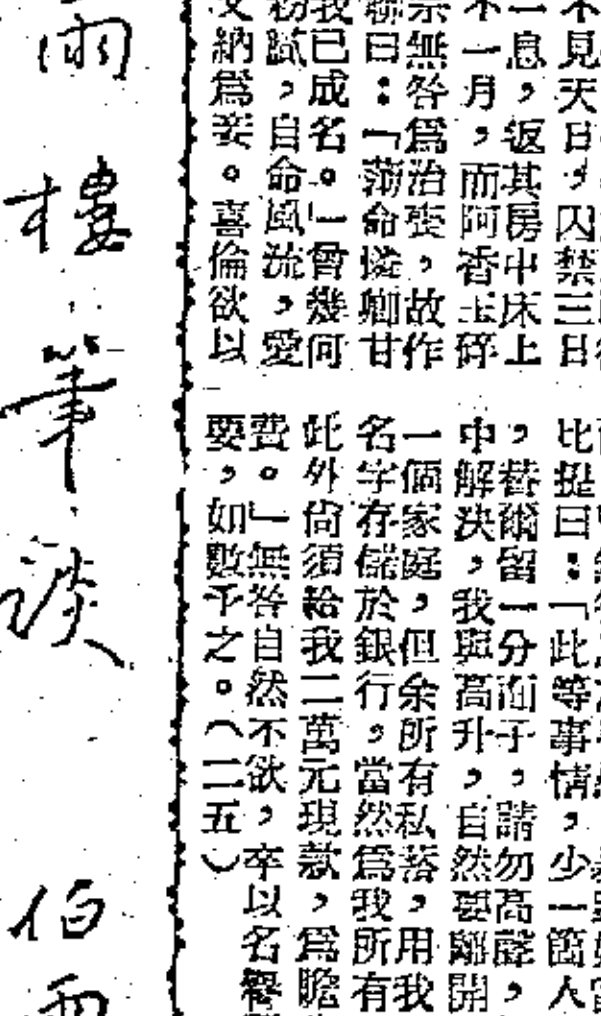 不見天日，囚禁三日
一息，返其房中床上
不一月，而阿香玉碎
無咎爲治喪，故作
聯曰：「薄命憐卿甘
我已成名。」曾幾何
粉膩，自命風流，愛
納爲妾。喜倫欲以
比挺曰：「此等事情，少一箇人
，替爾留一分面子，請勿高聲，
中解決，我與高升，自然要離開
一個家庭，但余所有私蓄，用我
名字存儲於銀行，當然爲我所有
此外尙須給我二萬元現款，爲贍
費。」無咎自然不欲，卒以名譽
要，如數予之。（二五）
雨樓筆談
伯雨